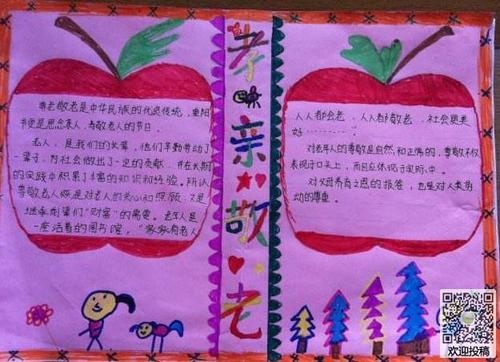 尊老敬老是中华民族的优良传统，重阳
节便是思念亲人、尊敬老人的节日。
老人，是我们的长辈，他们辛勤劳动了
一辈子，为社会做出了一定的贡献，并在长期
的实践中积累了丰富的知识和经验。所以
尊敬老人既是对老人的关心和照顾，又是
继承前辈们"财富"的需要。老年人是
一座活着的图书馆，"家家有老人
孝亲敬老
人人都会老，人人都敬老，社会更美
好…………。
对老年人的尊敬是自然和正常的，尊敬不仅
表现于口头上，而且应体现于实际中。
对父母养育之恩的报答，也是对人类劳
动的尊重。
欢迎投稿